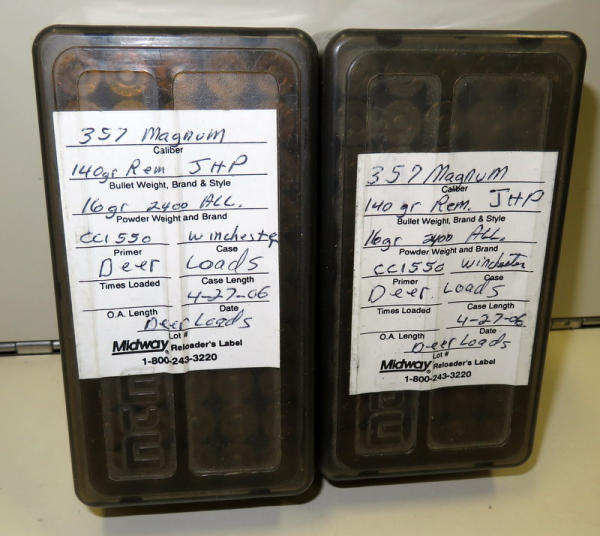 357 Magnum
Caliber
140gr Rem JHP
Bullet Weight, Brand & Style
16gr 2400 ALL.
Powder Weight and Brand
CCI 550 Winchester
Primer Case
Deer Loads
Times Loaded Case Length
4-27-06
O.A. Length Date
Deer Loads
Lot #
Midway Reloader's Label
1-800-243-3220
MTM
357 Magnum
Caliber
140 gr Rem. JHP
Bullet Weight, Brand & Style
16gr 2400 ALL.
Powder Weight and Brand
CCI 550 Winchester
Primer Case
Deer Loads
Times Loaded Case Length
4-27-06
O.A. Length Date
Deer Loads
Lot #
Midway Reloader's Label
1-800-243-3220
MTM